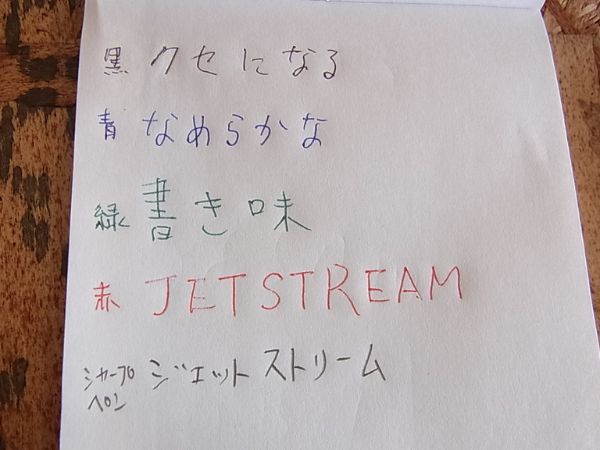 黒 クセになる
青 なめらかな
緑 書き味
赤 JETSTREAM
シャープ ジェットストリーム
ペン